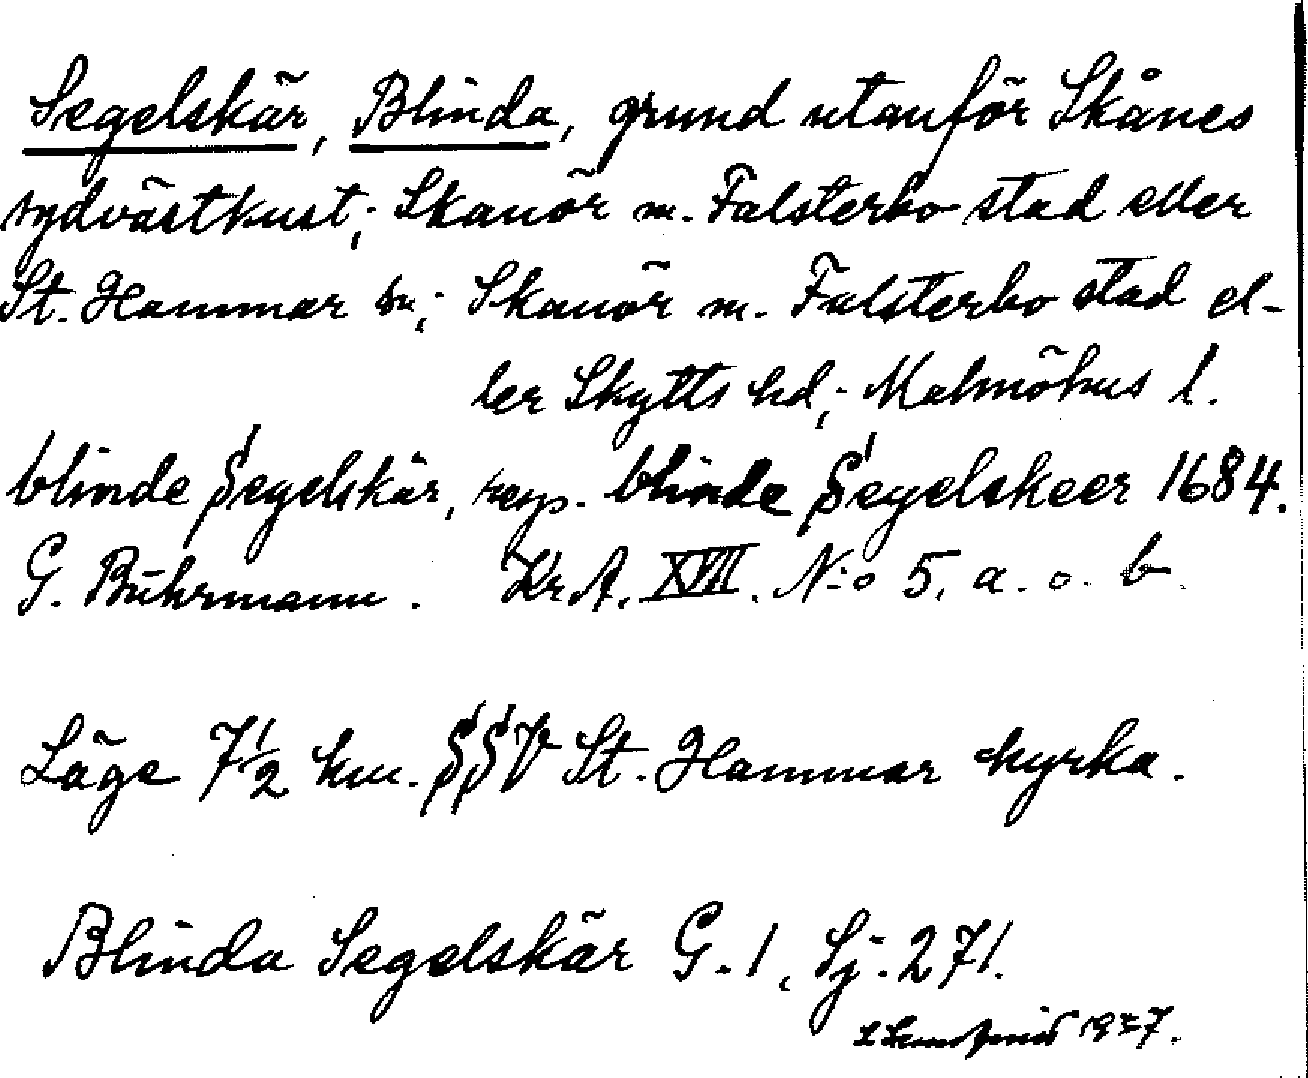 Segelskär, Blinda, grund utanför Skånes
sydvästkust; Skanör m. Falsterbo stad eller
St. Hammar sn; Skanör m. Falsterbo stad el-
ler Skytts hd; Malmöhus l.
blinde Segelskär, resp. blinde Segelskeer 1684.
G. Buhrmann. Kr A. XVII. N:o 5, a. o. b.
Läge 7½ km. SSV St. Hammar kyrka.
Blinda Segelskär G. 1, Sj. 271.
1927.